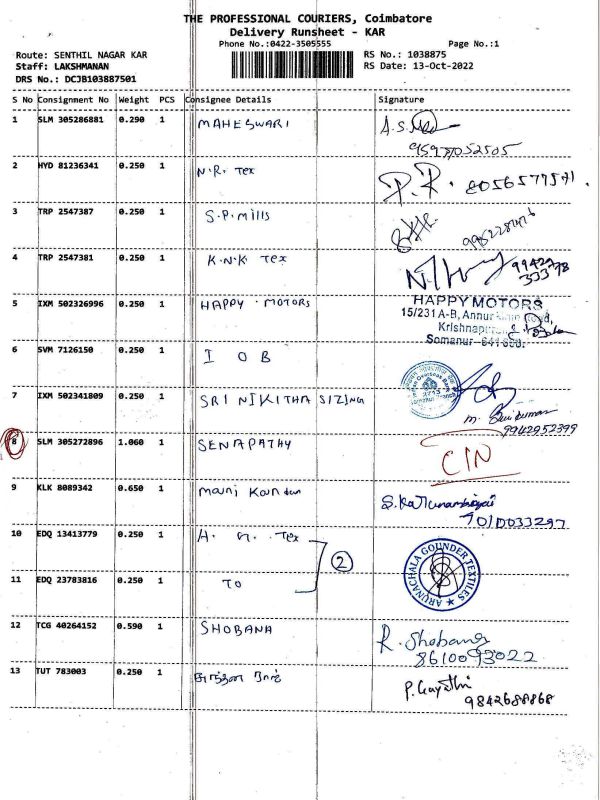 THE PROFESSIONAL COURIERS, Coimbatore
Delivery Runsheet - KAR
Phone No.:0422-3505555 Page No.:1
Route: SENTHIL NAGAR KAR RS No.: 1038875
Staff: LAKSHMANAN RS Date: 13-Oct-2022
DRS No.: DCJB103887501
S No Consignment No Weight PCS Consignee Details Signature
1 SLM 305286881 0.290 1 MAHESWARI A.S.
2 HYD 81236341 0.250 1 N.R. Tex P.R.
3 TRP 2547387 0.250 1 S.P.mills
4 TRP 2547381 0.250 1 K.N.K Tex 99422
33378
5 IXM 502326996 0.250 1 HAPPY MOTORS HAPPY MOTORS
15/231 A-B, Annur
Somanur
6 SVM 7126150 0.250 1 I O B
7 IXM 502341809 0.250 1 SRI NIKITHA SIZING
9942952399
8 SLM 305272896 1.060 1 SENAPATHY CIN
9 KLK 8089342 0.650 1 mani
7010033297
10 EDQ 13413779 0.250 1 A. Tex
2
11 EDQ 23783816 0.250 1 TO ARUNACHALA GOUNDER TEXTILES
12 TCG 40264152 0.590 1 SHOBANA R. Shobana
8610093022
13 TUT 783003 0.250 1 P. Gayathri
9842688868